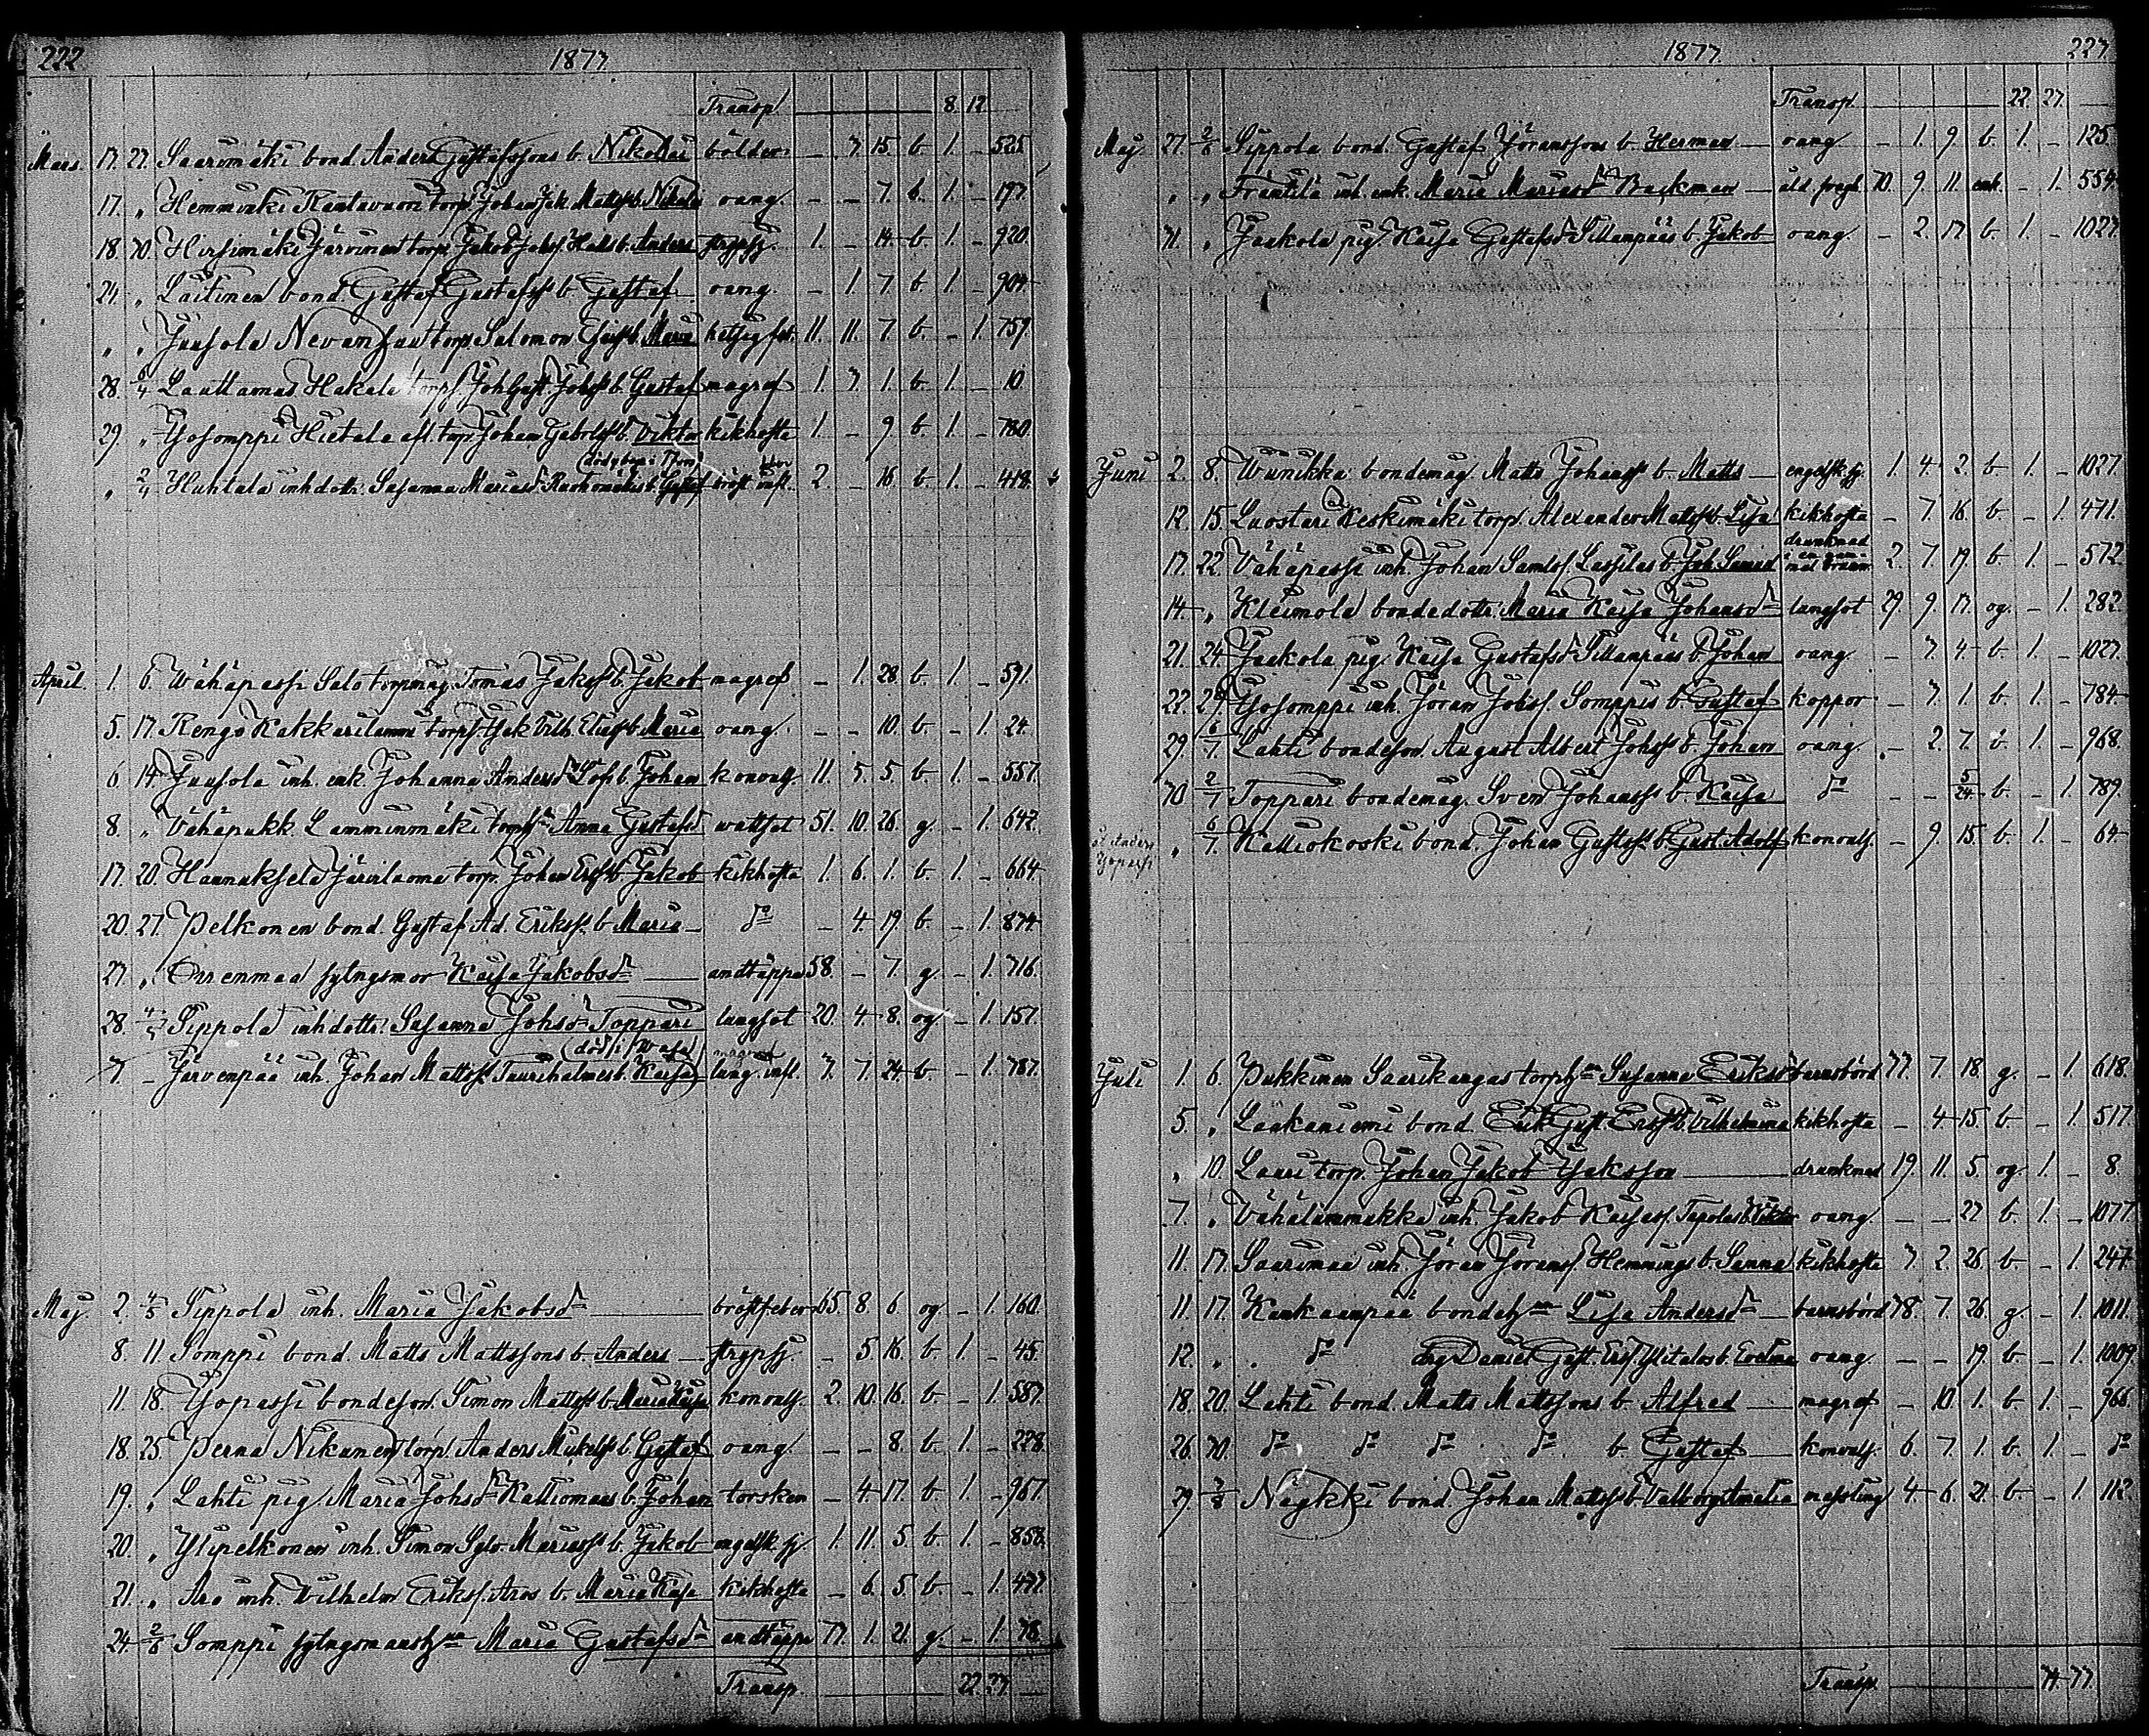 222 1877
Transp. 8. 12
Mars. 17. 27. Saarimäki bond. Anders Gustafssons b. Nikolai bölder - 7. 15. b. 1. - 525.
17. " Hemminki Rantavuori torp. Johan Isak Mattss. b. Nikolai oang. - - 7. b. 1. - 197.
18. 70. Hirsimäki Järvinen torp. Jakob Jakobss. b. Anders strypsj. 1. - 14. b. 1. - 920.
24. " Laitinen bond. Gustaf Gustafss. b. Gustaf oang. - 1. 7. b. 1. - 904
" " Juusola Nevanpää torp. Salomon b. Maria hetsig feb. 11. 11. 7. b. - 1. 759.
28. 6/4 Lauttamus Hakala torp. Joh Gust. Johss. b. Gustaf magref 1. 7. 1. b. 1. - 10
29. " Yosomppi Hietala afl. torp. Johan Gabrlss. b. Viktor kikhosta 1. - 9. b. 1. - 780
(död, begr. i )
" 2/4 Huhtala inh. dottr. Susanna Mariasd. b. Gustaf bröst infl. 2. - 16. b. 1. - 418.
April. 1. 6. Wähäpassi Salo torpmåg Tomas Jakobss. b. Jakob magref - 1. 28. b. 1. - 591.
5. 17. Rengo Kakkurilammi torp. Isak Vilh. Eliass. b. Maria oang. - - 10. b. - 1. 24.
6. 14. Juusola inh. enk. Johanna Andersd. b. Johan konvuls. 11. 5. 5. b. 1. - 557.
8. " Vähäpukk. Lamminmäki torph. Anna Gustafsd. wattsot 51. 10. 26. g. - 1. 642.
17. 20. Hannuksela Järvilaoma torp. Johan Erss. b. Jakob kikhosta 1. 6. 1. b. 1. - 664.
20. 27. Pelkonen bond. Gustaf Ad. Erikss. b. Maria do - 4. 19. b. - 1. 874
27. " Orrenmaa sytngsmor Kaisa Jakobsd. andtäppa 58. - 7. g. - 1. 716.
28. 4/5 Sippola inh. dottr. Susanna Johsd. Toppari lungsot 20. 4. 8. og. - 1. 151.
(död i Wasa)
7. - Järvenpää inh. Johan Mattss. b. Kaisa lung. infl. 7. 7. 24. b. - 1. 787.
Maj. 2. 4/5 Sippola inh. Maria Jakobsd. bröstfeber 65. 8. 6. og. - 1. 160.
8. 11. Somppi bond. Matts Mattssons b. Anders strypsj. - 5. 16. b. 1. - 45.
11. 18. Yopassi bondeson. Simon Mattss. b. Maria Kaisa konvuls. 2. 10. 16. b. - 1. 587.
18. 25. Perna Nikunen torp. Anders Mickelss. b. Gustaf oang. - - 8. b. 1. - 228.
19. " Lahti pig. Maria Johsd. Kalliomaas b. Johan torsken - 4. 17. b. 1. - 967.
20. " Ylipelkonen inh. Simon Sylv. Mariass. b. Jakob engelsk. sj. 1. 11. 5. b. 1. - 858.
21. " Aro inh. Wilhelm Erikss. Aros b. Maria Kaisa kikhosta - 6. 5. b. - 1. 477.
24. 2/6 Somppi sytngsmansh. Maria Gustafsd. andtäppa 77. 1. 21. g. - 1. 78.
Transp. 22. 27.
1877. 227.
Transp. 22. 27.
Maj. 27. 2/6 Sippola bond. Gustaf Jöranssons b. Herman oang - 1. 9. b. 1. - 125.
" " Franttila inh. enk. Maria Mariasd. Backman åld. bräckl. 70. 9. 11. enk. - 1. 554.
71. " Jaakola pig. Kaisa Gustafsd. Sillanpääs b. Jakob oang. - 2. 17. b. 1. - 1027
Juni 2. 8. Wunikka bondemåg. Matts Johanss. b. Matts engelsk sj. 1. 4. 2. b. 1. - 1027.
12. 15. Luostari Keskimäki torp. Alexander Mattss. b. Lisa kikhosta - 7. 16. b. - 1. 471.
17. 22. Vähäpassi inh. Johan Samlss. Lassilas b. Joh. Samuel drunknad i en gammal brunn 2. 7. 19. b. 1. - 572.
14. " Kleimola bondedottr. Maria Kaisa Johansd. lungsot 29. 9. 17. og. - 1. 282.
21. 24. Jaakola pig. Kaisa Gustafsd. Sillanpääs b. Johan oang. - 7. 4. b. 1. - 1027.
22. 25. Yosomppi inh. Jöran Johss. Somppis b. Gustaf koppor - 7. 1. b. 1. - 784.
29. 6/7 Lahti bondeson. August Albert Johss. b. Johan oang. - 2. 7. b. 1. - 968.
70 2/7 Toppari bondemåg. Sven Johanss. b. Kaisa do - - 5/24 b. - 1. 789.
" 6/7 Kalliokoski bond. Johan Gustafss. b. Gust. Adolf konvuls. - 9. 15. b. 1. - 64.
Juli 1. 6. Pukkinen Saarikangas torph. Susanna Eriksd. barnsbörd 77. 7. 18. g. - 1. 618.
5. " Laakaniemi bond. Erik Gust. Erss. b. Vilhelmina kikhosta - 4. 15. b. - 1. 517.
" 10. Lauri torp. Johan Jakob Isaksson drunknad 19. 11. 5. og. 1. - 8.
7. " Vähälummukka inh. Jakob Kaisass. Tapolas b. Viktor oang. - - 27. b. 1. - 1077.
11. 17. Saarimaa inh. Jöran Jöranss. Hemmings b. Sanna kikhosta 7. 2. 26. b. - 1. 247.
11. 17. Kankaanpää bondeh. Lisa Andersd. barnsbörd 78. 7. 26. g. - 1. 1011.
12. " " do drg Daniel Gust. Erss. Ylitalos b. Evelina oang. - - 19. b. - 1. 1009.
18. 20. Lahti bond. Matts Mattssons b. Alfred magref - 10. 1. b. 1. - 966.
26. 70. do do do do b. Gustaf konvuls. 6. 7. 1. b. 1. - do
29. 3/8 Näykki bond. Johan Mattss. b. Valborg Amalia messling 4. 6. 21. b. - 1. 112.
Transp. 74. 77.